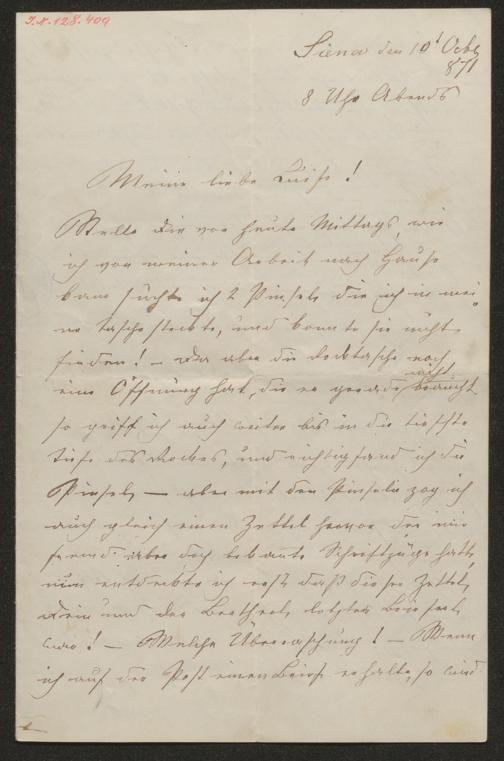 I.N. 128.409
Siena den 10t Octb
871
8 Uhr Abends
Meine liebe Luise!
Stelle Dir vor heute Mittags, wie
ich von meiner Arbeit nach Hause
kam suchte ich 2 Pinseln die ich in mei-
ne Tasche steckte, und konnte sie nicht
finden! – Da aber die Rocktasche noch
eine Öffnung hat, die er gerade nicht braucht
so griff ich auch weiter bis in die tiefste
Tiefe des Rockes, und richtig fand ich die
Pinseln – aber mit den Pinseln zog ich
auch gleich einen Zettel hervor der mir
fremd aber doch bekannte Schriftzüge hatte,
nun entdeckte ich erst daß dieser Zettel,
Dein und der letzter
war! – Welche Überraschung! – Wenn
ich auf der Post einen Brief erhalte, so sind